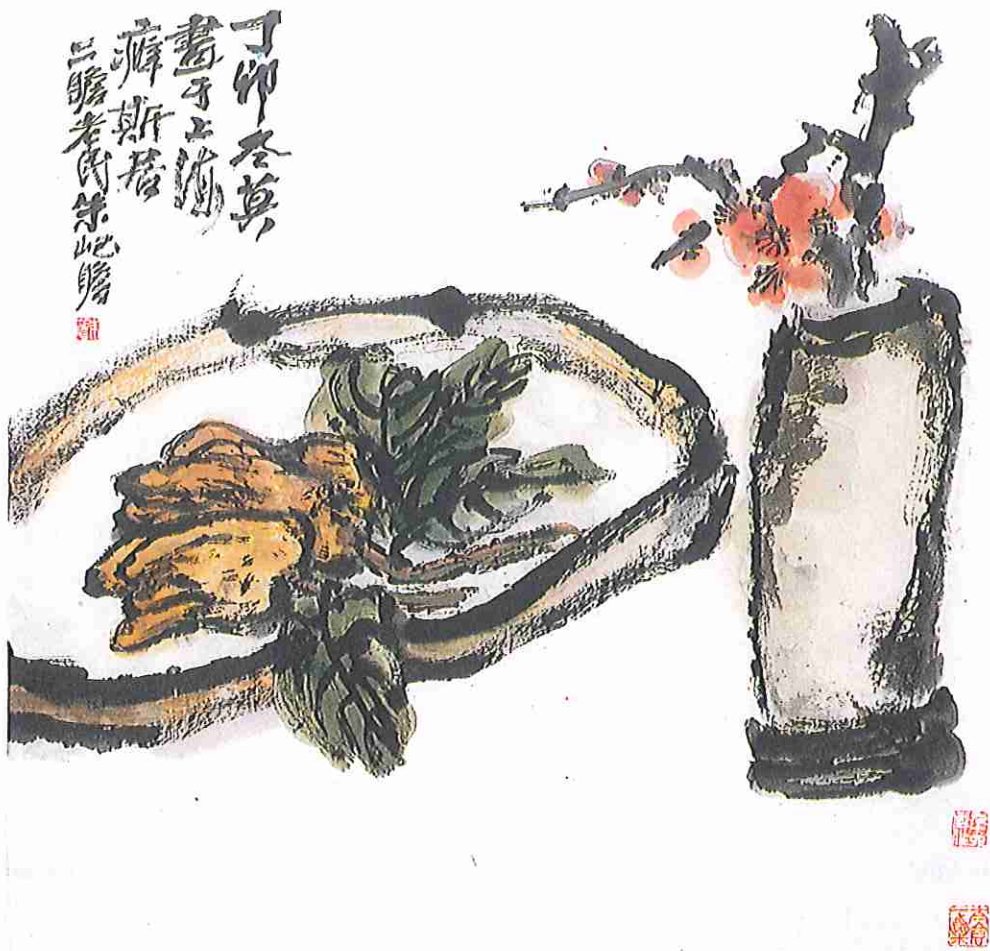 丁卯冬莫
畫于上海
癖斯居
二瞻老民朱屺瞻